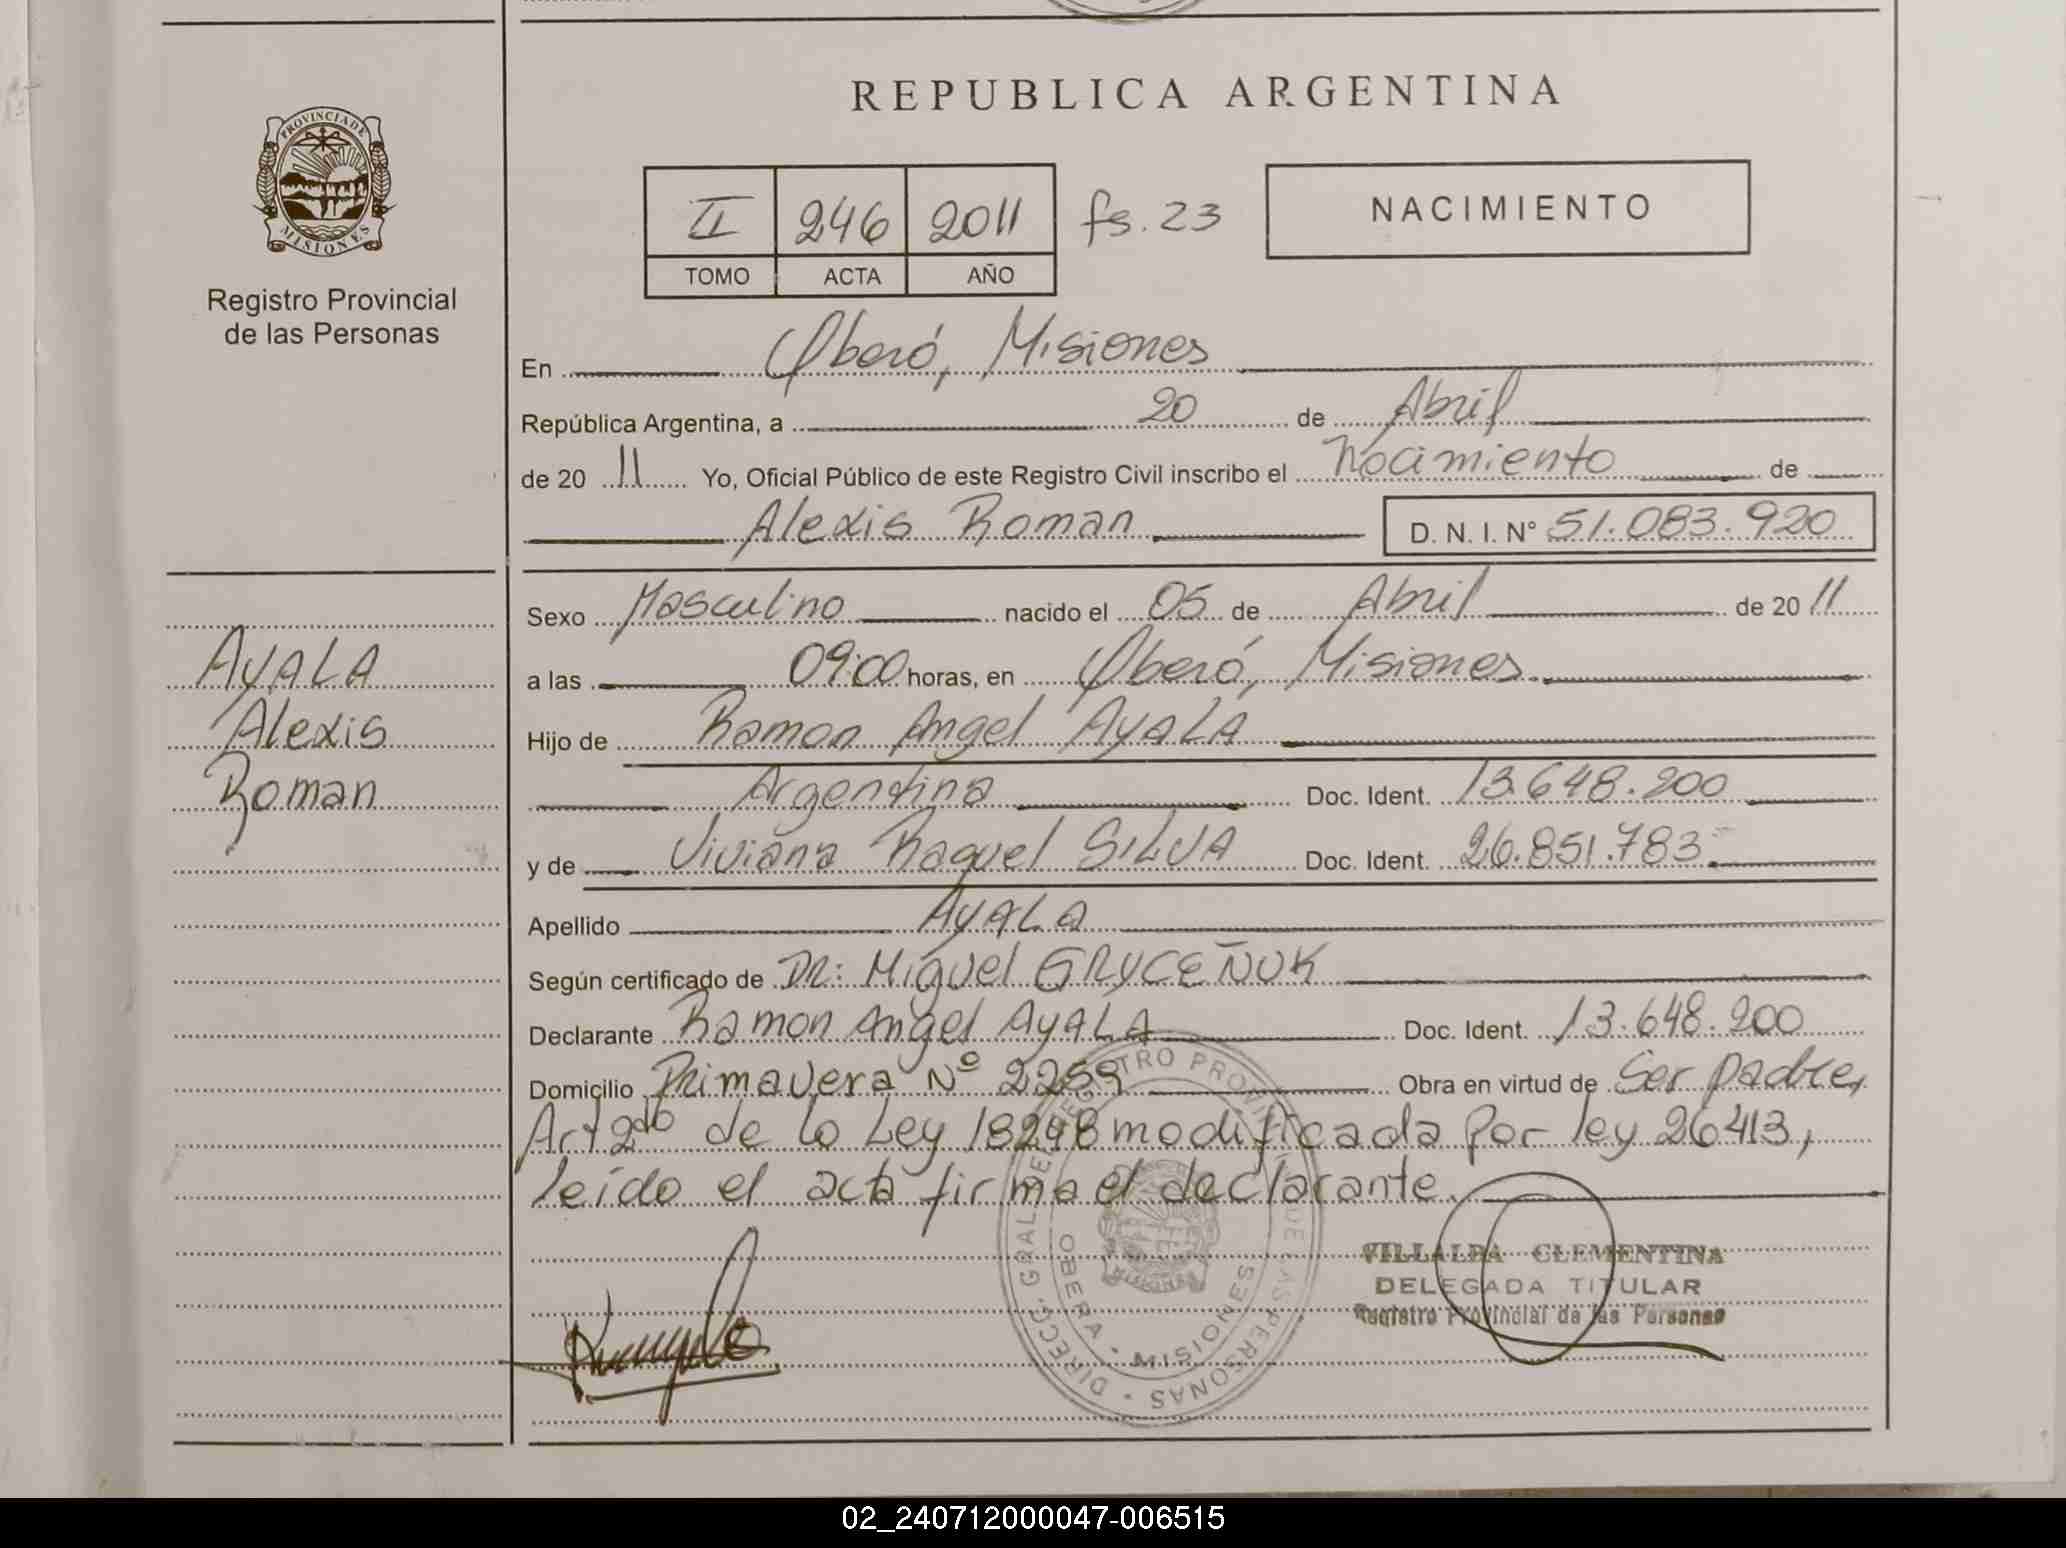 REPUBLICA ARGENTINA
PROVINCIA DE
MISIONES
Registro Provincial
de las Personas
II 246 2011 fs. 23
TOMO ACTA AÑO
NACIMIENTO
En Oberá, Misiones
República Argentina, a 20 de Abril
de 20 11 Yo, Oficial Público de este Registro Civil inscribo el Nacimiento de
Alexis Roman D. N. I. N° 51.083.920
AYALA
Alexis
Roman
Sexo Masculino nacido el 05 de Abril de 20 11
a las 09:00 horas, en Oberá, Misiones
Hijo de Ramon Angel AYALA
Argentina Doc. Ident. 13.648.200
y de Viviana Raquel SILVA Doc. Ident. 26.851.783
Apellido AYALA
Según certificado de DR: Miguel GRYCEÑUK
Declarante Ramon Angel AYALA Doc. Ident. 13.648.200
Domicilio Primavera Nº 2259 Obra en virtud de Ser padre,
Art 2do de la Ley 18248 modificada por ley 26413,
leído el acta firma el declarante.
VILLALBA CLEMENTINA
DELEGADA TITULAR
Registro Provincial de las Personas
DIRECC. GRAL. DEL REGISTRO PROVINCIAL DE LAS PERSONAS
OBERA · MISIONES
02_240712000047-006515